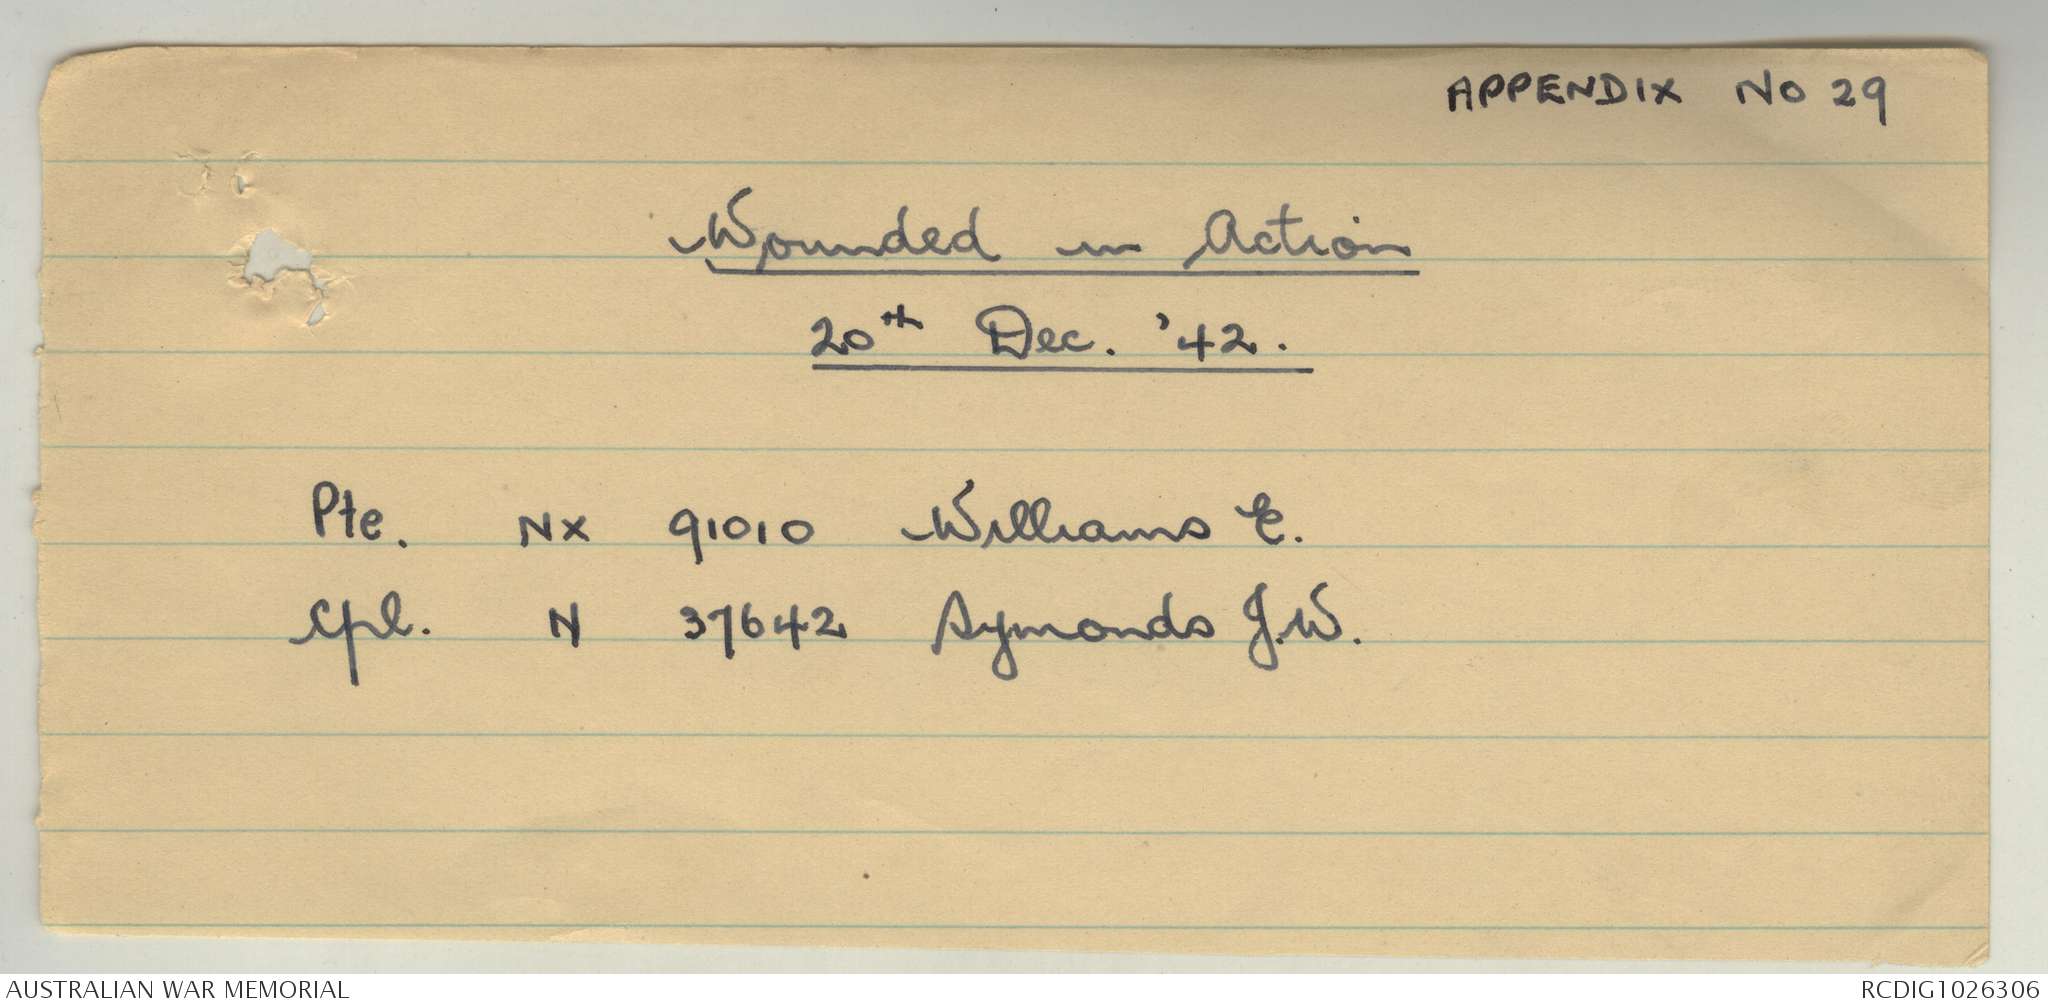 APPENDIX No 29
Wounded in Action
20th Dec. '42.
Pte. NX 91010 Williams E.
Cpl. N 37642 Symonds J.W.
AUSTRALIAN WAR MEMORIAL
RCDIG1026306